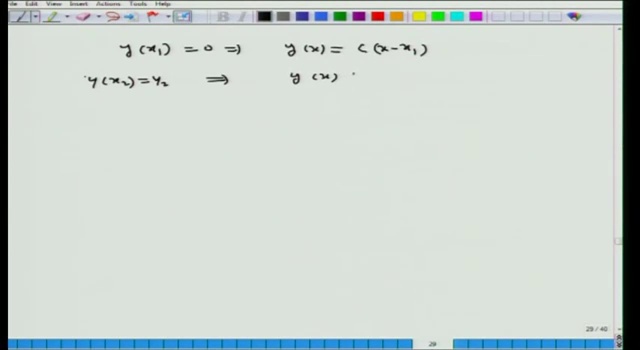 Edit View Insert Actions Tools Help
y(x₁) = 0 ⇒ y(x) = C(x-x₁)
y(x₂) = y₂ ⇒ y(x)
29 / 40
29